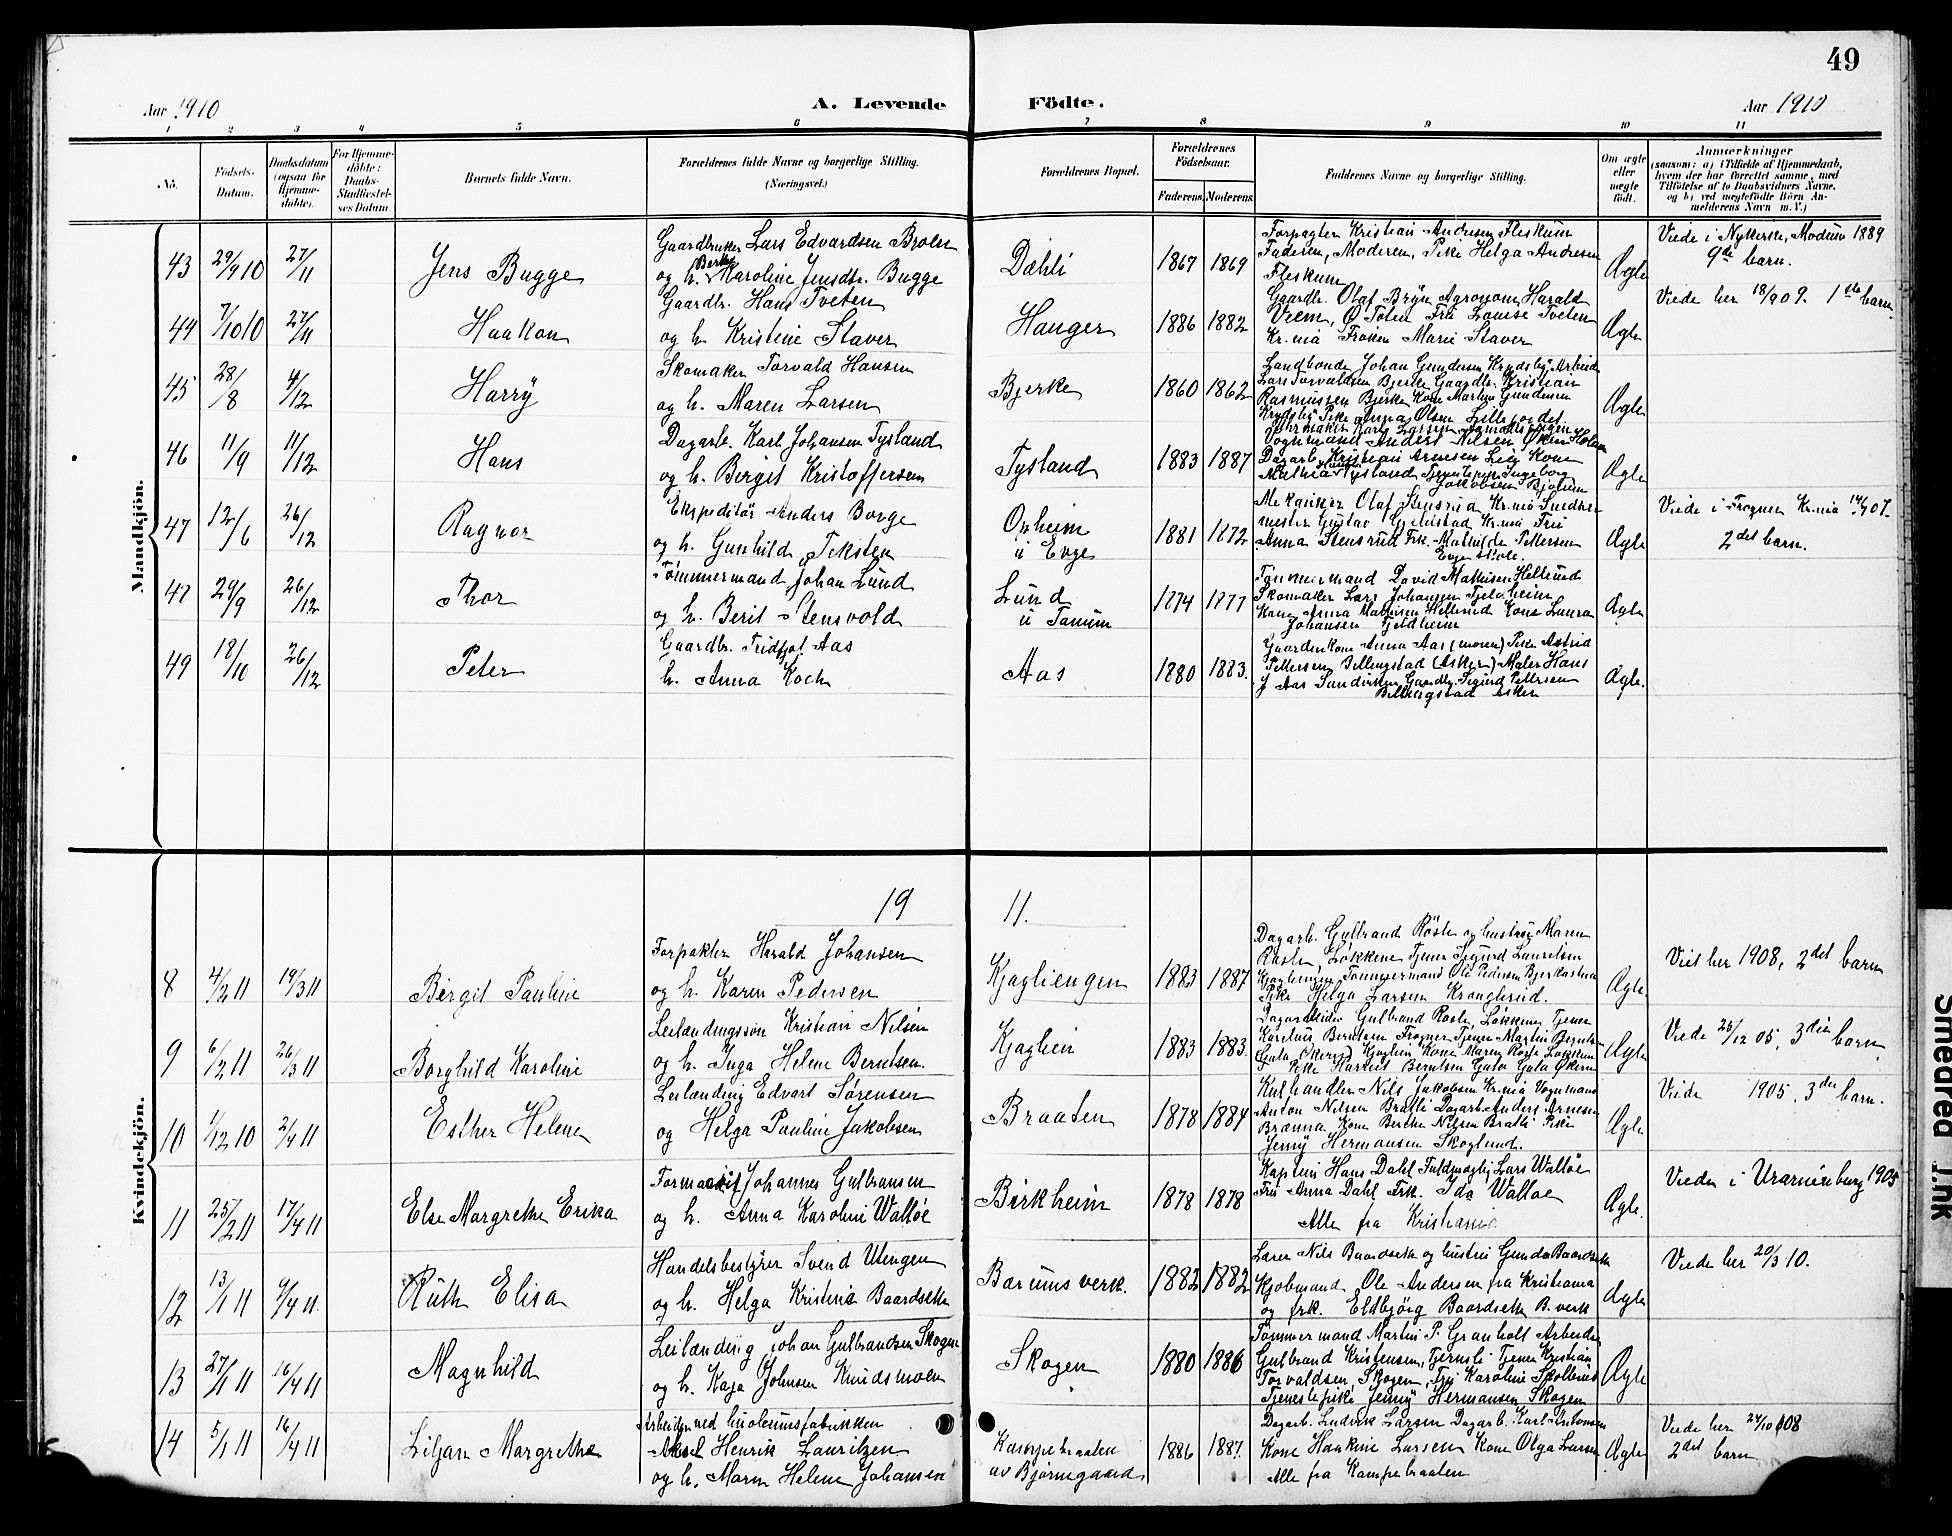 49
Aar 1910 A. Levende Födte. Aar 1910
1 2 3 4 5 6 7 8 9 10 11
No. Födsels-Datum. Daabsdatum (ogsaa for Hjemme-döbte). For Hjemme-döbte: Daabs-Stadfæstel-ses Datum. Barnets fulde Navn. Forældrenes fulde Navne og borgerlige Stilling. (Næringsvei.) Forældrenes Bopæl. Forældrenes Födselsaar. Faderens Moderens Faddernes Navne og borgerlige Stilling. Om ægte eller uægte født. Anmærkninger
(saasom: a) i Tilfælde af Hjemmedaab, hvem der har forrettet samme, med Tilföielse af to Daabsvidners Navne, og b) ved uægtefödte Börn An-melderens Navn m. V.)
Mandkjön.
43 29/9 10 27/11 Jens Bugge
Gaardbruker Lars Edvardsen
og h. Karoline Jensdtr. Bugge
Dæhli 1867 1869
Forpagter Kristian Andresen Fleskum
Faderen, Moderen, Pike Helga Andresen
Fleskum
Ægte
Viede i Nykirke, Modum 1889
9de barn.
44 7/10 10 27/11 Haakon
Gaardbr. Hans Tveten
og h. Kristine Staver
Hauger 1886 1882
Gaardbr. Olaf Bryn Agronom Harald
Veem, Ø Toten Fru Louise Tveten
Kr.nia Frøken Marie Staver
Ægte
Viede her 18/9 09. 1ste barn
45 28/8 4/12 Harry
Skomaker Torvald Hansen
og h. Maren Larsen
Bjerke 1860 1862
Landbonde Johan Gundersen Krydsby Arbeid
Lars Torvaldsen Bjerke Gaardbr. Kristian
Rasmussen Bjerke Kone Martin Gundersen
Krydsby Pike Anna Olsen
Ægte
46 11/9 11/12 Hans
Dagarb. Karl Johansen Tysland
og h. Bergit Kristoffersen
Tysland 1883 1887
Vognmand Anders Nilsen
Dagarb. Kristian Arnesen Kone
Mathea Tysland Ingeborg
Jakobsen Bjølum
Ægte
47 12/6 26/12 Ragnar
Ekspeditør Anders Borge
og h. Gunhild Teksten
Onheim
i Evje
1881 1872
Mekaniker Olaf Stensrud Kr.nia
mester Gustav Kr.nia Fru
Anna Stensrud Frk. Mathilde Pettersen
Evje skole.
Ægte
Viede i Frogner Kr.nia 14/4 07.
2det barn.
48 29/9 26/12 Thor
Tømmermand Johan Lund
og h. Berit Stensvold
Lund
i Tanum
1874 1877
Tømmermand David Mathisen Hellerud
Skomaker Lars Johansen Fjeldheim
Kone Anna Mathisen Hellerud Kone Laura
Johansen Fjeldheim
Ægte
49 18/10 26/12 Peter
Gaardbr. Fridtjof Aas
h. Anna Koch
Aas 1880 1883.
Gaardm.kone Anna Aas (moren) Pike Astrid
Pettersen Billingstad (Asker) Maler Hans
J Aas Sandviken, Gaardbr. Sigurd Pettersen
Billingstad Asker
Ægte.
Kvindekjön.
19 11.
8 4/2 11 19/3 11 Birgit Pauline
Forpakter Harald Johansen
og h. Karen Pedersen
Kjagliengen 1883 1887
Dagarb. Gulbrand Røste og hustru Maren
Røste, Løkkene Tjener Sigurd Lauritsen
Kjagliengen Tømmermand Ole Pedersen Bjerkastua
Pike Helga Larsen Kranglerud.
Ægte
Viet her 1908, 2det barn
9 6/2 11 26/3 11 Borghild Karoline
Leilændingssøn Kristian Nilsen
og h. Inga Helene Berntsen.
Kjaglien 1883 1883.
Dagarbeider Gulbrand Røste, Løkkene Tjener
Karelius Berntsen Frogner Tjener Martin Berntsen
Kjaglien Kone Maren Røste Løkkene
Pike Berntsen Gata Økern
Ægte
Viede 25/12 05, 3die barn.
10 1/12 10 2/4 11 Esther Helene
Leilænding Edvart Sørensen
og Helga Pauline Jakobsen
Braaten 1878 1884
Kulhandler Nils Jakobsen Kr.nia Vognmand
Anton Nilsen Bratli Dagarb. Anders Arnesen
Brænna Kone Berthe Nilsen Bratli Pike
Jenny Hermansen Skoglund.
Ægte
Viede 1905, 3die barn.
11 25/2 11 17/4 11 Else Margrethe Erika
Johannes Gulbransen
og h. Anna Karoline Walløe
Birkheim 1878 1878
Kaptein Hans Dahl Fuldmægtig Lars Walløe
Fru Anna Dahl Frk. Ida Walløe
Alle fra Kristiania
Ægte.
Viede i Uranienburg 1905
12 13/1 11 9/4 11. Ruth Elisa
Handelsbestyrer Svend Utengen
og h. Helga Kristine Baardseth
Bærums verk. 1882 1882
Lærer Nils Baardseth og hustru Gunda Baardseth
Kjøbmand Ole Andersen fra Kristiania
og frk. Eldbjørg Baardseth B. verk
Ægte
Viede her 20/3 10.
13 27/1 11 16/4 11 Magnhild
Leilænding Johan Gulbrandsen Skogen
og h. Kaja Johnsen Knudsmoen
Skogen 1880 1886
Tømmermand Martin P. Granholt Arbeider
Gulbrand Kristensen, Tjernsli Tjener Kristian
Torvaldsen, Skogen, Fru Karoline
Tjenestepike Jenny Hermansen Skogen
Ægte
14 5/1 11 16/4 11 Liljan Margrethe
Arbeider ved linoleumsfabrikken
Aksel Henrik Lauritzen
og h. Maren Helene Johansen
Kampebraaten
av Bjørnegaard
1886 1887.
Dagarb. Ludvik Larsen Dagarb. Karl Antonsen
Kone Haakine Larsen Kone Olga Larsen
Alle fra Kampebraaten
Ægte
Viede her 24/10 08
2det barn
Smedrud I.nk